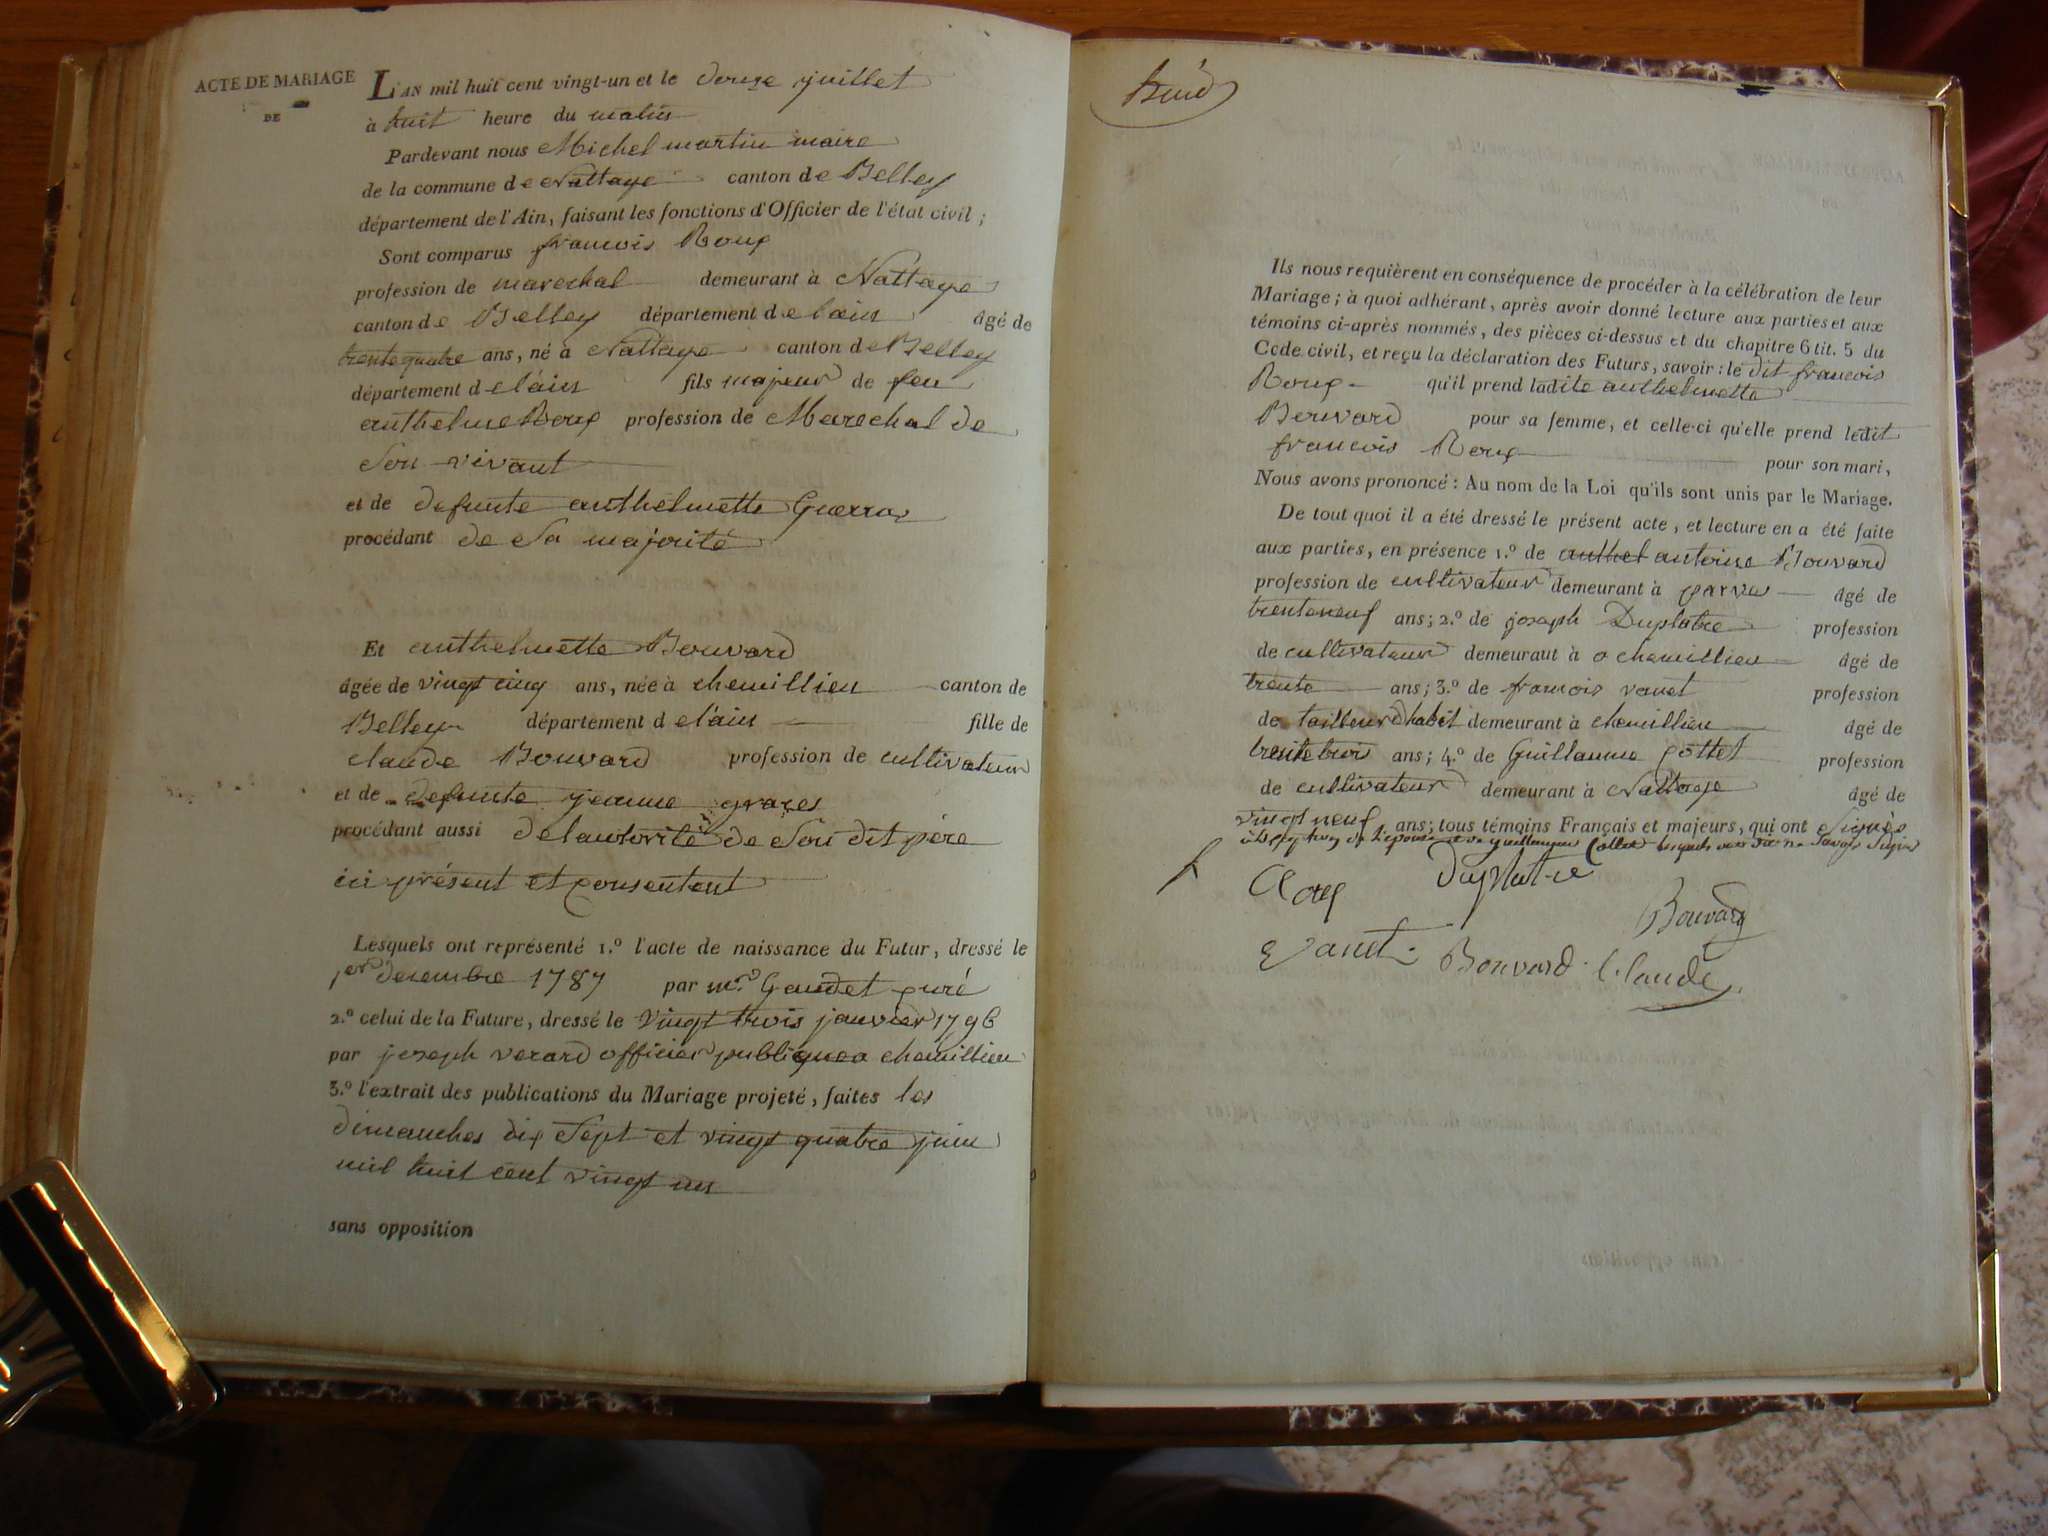 ACTE DE MARIAGE
DE
L'AN mil huit cent vingt-un et le douze juillet
à huit heure du matin
Pardevant nous Michel martin maire
de la commune de Nattage canton de Belley
département de l'Ain, faisant les fonctions d'Officier de l'état civil ;
Sont comparus francois Roux
profession de marechal demeurant à Nattage
canton de Belley département de lain âgé de
trente quatre ans, né à Nattage canton de Belley
département de lain fils majeur de feu
anthelme Roux profession de Marechal de
Son vivant
et de defunte anthelmette
procédant de Sa majorité
Et anthelmette Bouvard
âgée de vingt cinq ans, née à chemillieu canton de
Belley département d elain fille de
claude Bouvard profession de cultivateur
et de defunte jeanne
procédant aussi de lautorité de Son dit père
ici présent et consentent
Lesquels ont représenté 1.º l'acte de naissance du Futur, dressé le
1er decembre 1787 par mr. Gaudet curé
2.º celui de la Future, dressé le vingt trois janvier 1796
par joseph verard officier publique a chemillieu
3.º l'extrait des publications du Mariage projeté, faites les
dimanches dix Sept et vingt quatre juin
mil huit cent vingt un
sans opposition
Ils nous requièrent en conséquence de procéder à la célébration de leur
Mariage ; à quoi adhérant, après avoir donné lecture aux parties et aux
témoins ci-après nommés, des pièces ci-dessus et du chapitre 6 tit. 5 du
Code civil, et reçu la déclaration des Futurs, savoir : le dit francois
Roux qu'il prend ladite anthelmette
Bouvard pour sa femme, et celle-ci qu'elle prend ledit
francois Roux pour son mari,
Nous avons prononcé : Au nom de la Loi qu'ils sont unis par le Mariage.
De tout quoi il a été dressé le présent acte, et lecture en a été faite
aux parties, en présence 1.º de anthel antoine Bouvard
profession de cultivateur demeurant à parves âgé de
trenteneuf ans ; 2.º de joseph Duplatre profession
de cultivateur demeurant à o chemillieu âgé de
trente ans ; 3.º de francois vanet profession
de tailleur dhabit demeurant à chemillieu âgé de
trente trois ans ; 4.º de Guillaume pottet profession
de cultivateur demeurant à Nattage âgé de
vingt neuf ans ; tous témoins Français et majeurs, qui ont signés
de l'epouse et de guillaume Collet lesquels ont dit ne Savoir Signer
Roux
Duplatre
Bouvard
Vanet
Bouvard Claude